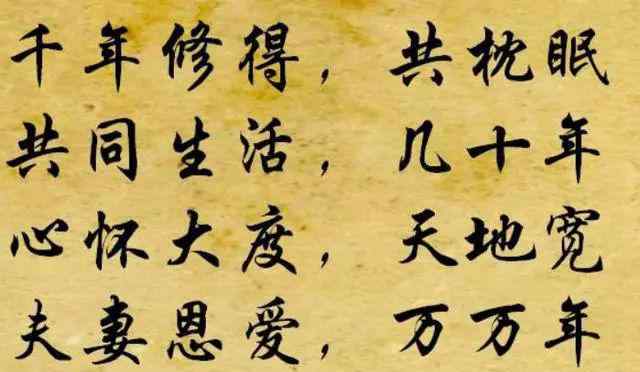 千年修得，共枕眠
共同生活，几十年
心怀大度，天地宽
夫妻恩爱，万万年